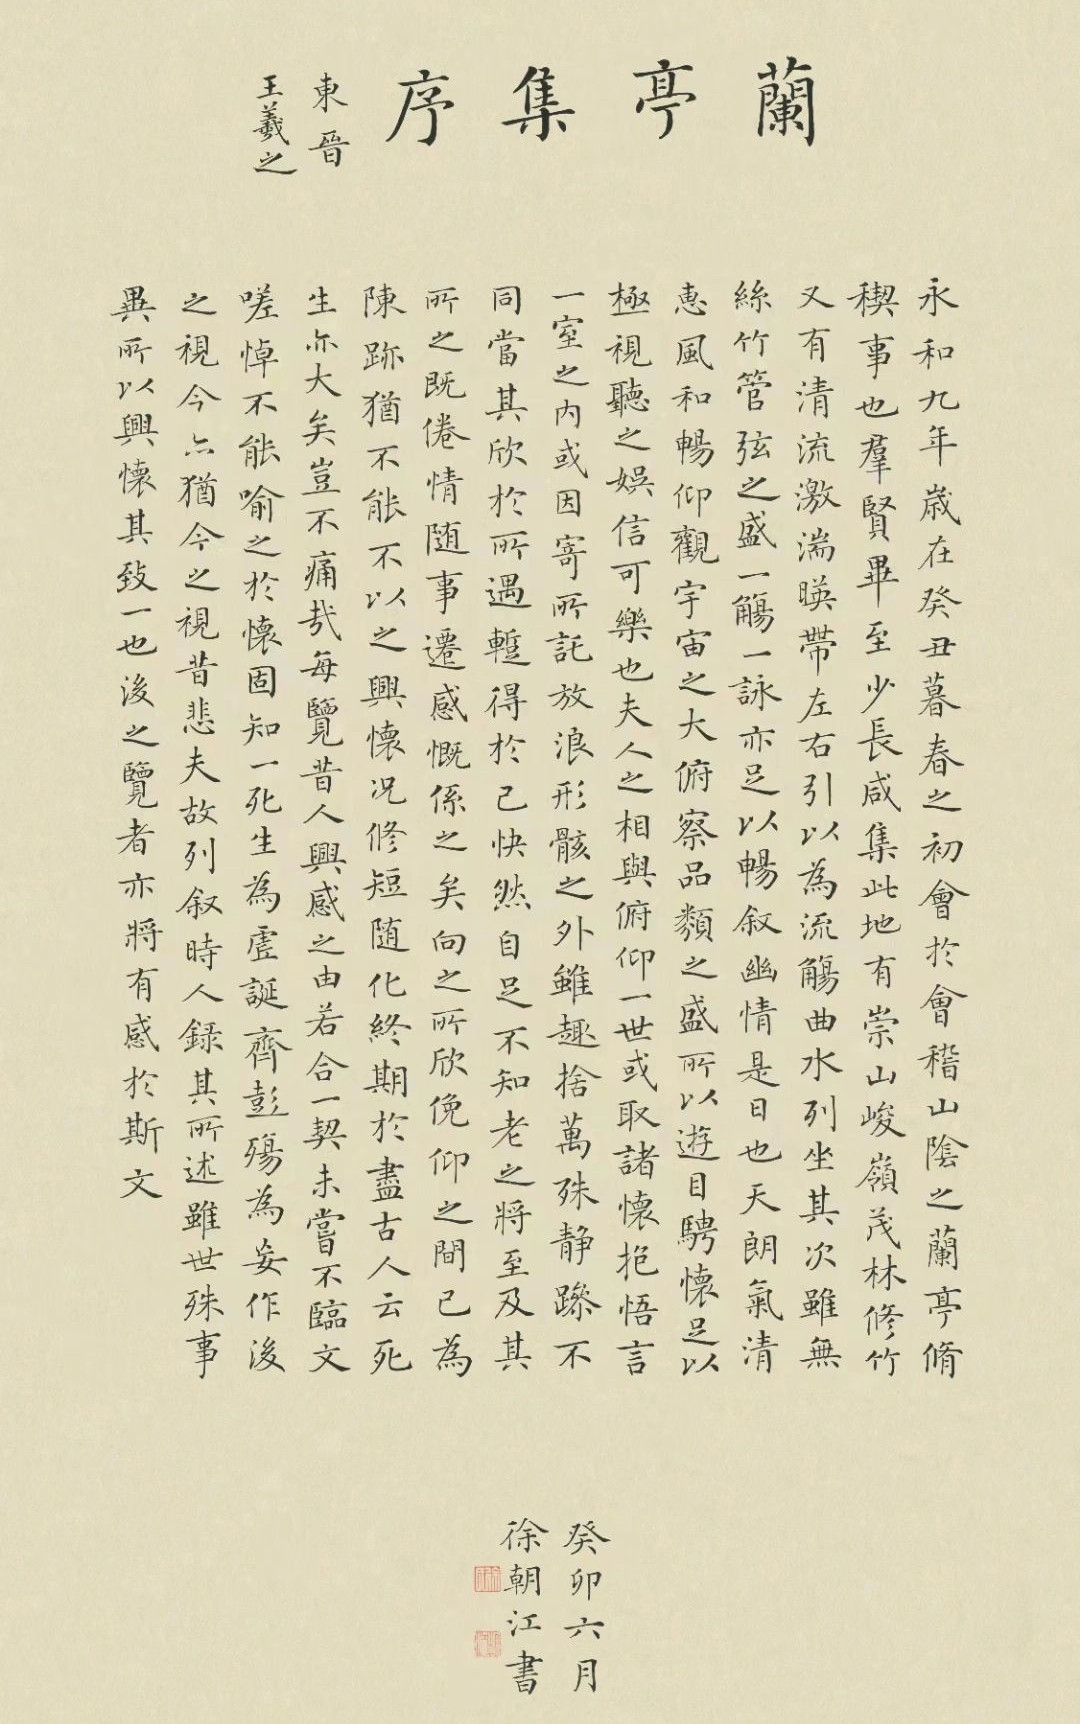 蘭亭集序
東晉
王羲之
永和九年歲在癸丑暮春之初會於會稽山陰之蘭亭脩
稧事也羣賢畢至少長咸集此地有崇山峻嶺茂林修竹
又有清流激湍暎帶左右引以為流觴曲水列坐其次雖無
絲竹管弦之盛一觴一詠亦足以暢叙幽情是日也天朗氣清
惠風和暢仰觀宇宙之大俯察品類之盛所以遊目騁懷足以
極視聽之娛信可樂也夫人之相與俯仰一世或取諸懷抱悟言
一室之內或因寄所託放浪形骸之外雖趣捨萬殊静躁不
同當其欣於所遇蹔得於己快然自足不知老之將至及其
所之既倦情随事遷感慨係之矣向之所欣俛仰之間已為
陳跡猶不能不以之興懷况修短随化終期於盡古人云死
生亦大矣豈不痛哉每覽昔人興感之由若合一契未嘗不臨文
嗟悼不能喻之於懷固知一死生為虛誕齊彭殤為妄作後
之視今亦猶今之視昔悲夫故列叙時人録其所述雖世殊事
異所以興懷其致一也後之覽者亦將有感於斯文
癸卯六月
徐朝江書